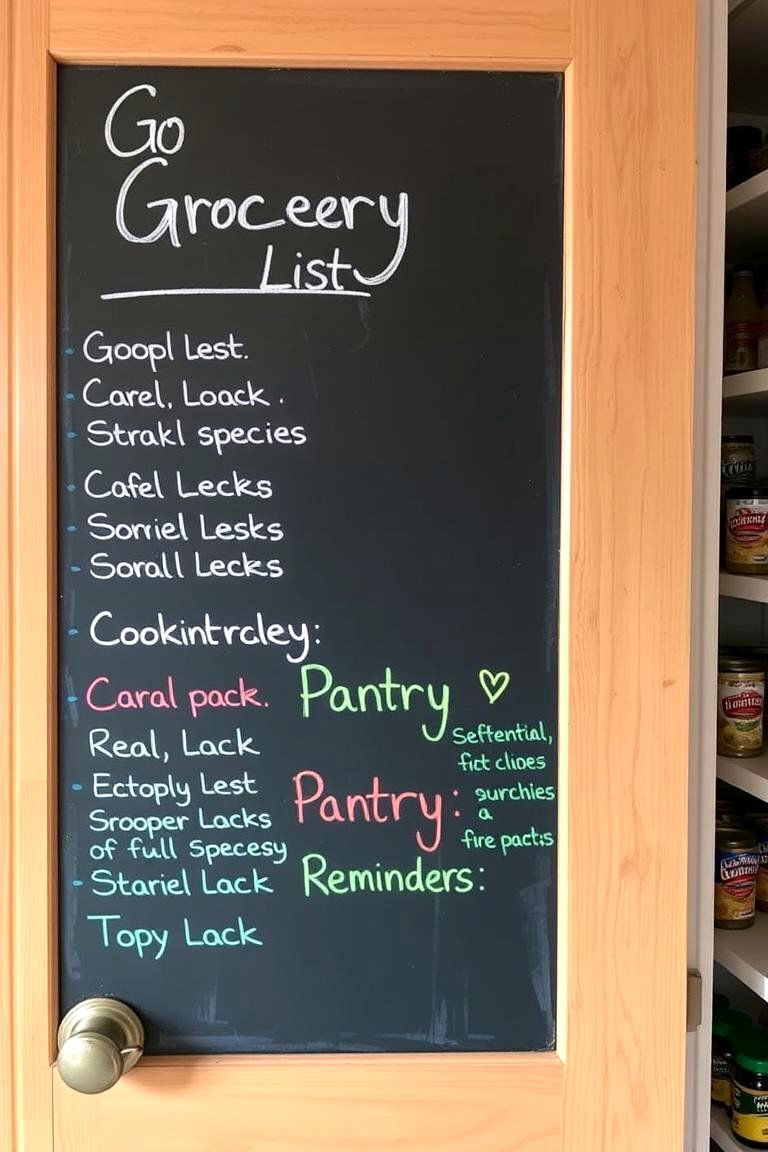 Go
Groceery
List
Goopl Lest.
Carel, Loack.
Strakl species
Cafel Lecks
Sorriel Lesks
Sorall Lecks
Cookintrcley:
Caral pack.
Real, Lack
Ectoply Lest
Srooper Lacks
of full Specesy
Stariel Lack
Topy Lack
Pantry
Seftential,
fict clioes
Pantry:
surchies
a
fire pactis
Reminders: